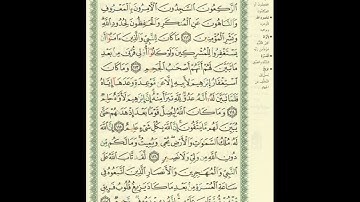 ٱلرَّٰكِعُونَ ٱلسَّٰجِدُونَ ٱلْأٓمِرُونَ بِٱلْمَعْرُوفِ
وَٱلنَّاهُونَ عَنِ ٱلْمُنكَرِ وَٱلْحَٰفِظُونَ لِحُدُودِ ٱللَّهِ
وَبَشِّرِ ٱلْمُؤْمِنِينَ ﴿١١٢﴾ مَا كَانَ لِلنَّبِيِّ وَٱلَّذِينَ ءَامَنُوٓا۟ أَن
يَسْتَغْفِرُوا۟ لِلْمُشْرِكِينَ وَلَوْ كَانُوٓا۟ أُو۟لِى قُرْبَىٰ مِنۢ بَعْدِ
مَا تَبَيَّنَ لَهُمْ أَنَّهُمْ أَصْحَٰبُ ٱلْجَحِيمِ ﴿١١٣﴾ وَمَا كَانَ
ٱسْتِغْفَارُ إِبْرَٰهِيمَ لِأَبِيهِ إِلَّا عَن مَّوْعِدَةٍ وَعَدَهَآ إِيَّاهُ
فَلَمَّا تَبَيَّنَ لَهُۥٓ أَنَّهُۥ عَدُوٌّ لِّلَّهِ تَبَرَّأَ مِنْهُ إِنَّ إِبْرَٰهِيمَ لَأَوَّٰهٌ حَلِيمٌ
﴿١١٤﴾ وَمَا كَانَ ٱللَّهُ لِيُضِلَّ قَوْمًۢا بَعْدَ إِذْ هَدَىٰهُمْ حَتَّىٰ
يُبَيِّنَ لَهُم مَّا يَتَّقُونَ إِنَّ ٱللَّهَ بِكُلِّ شَىْءٍ عَلِيمٌ ﴿١١٥﴾ إِنَّ ٱللَّهَ
لَهُۥ مُلْكُ ٱلسَّمَٰوَٰتِ وَٱلْأَرْضِ يُحْىِۦ وَيُمِيتُ وَمَا لَكُم مِّن
دُونِ ٱللَّهِ مِن وَلِىٍّ وَلَا نَصِيرٍ ﴿١١٦﴾ لَّقَد تَّابَ ٱللَّهُ عَلَى
ٱلنَّبِىِّ وَٱلْمُهَٰجِرِينَ وَٱلْأَنصَارِ ٱلَّذِينَ ٱتَّبَعُوهُ فِى
سَاعَةِ ٱلْعُسْرَةِ مِنۢ بَعْدِ مَا كَادَ يَزِيغُ قُلُوبُ فَرِيقٍ